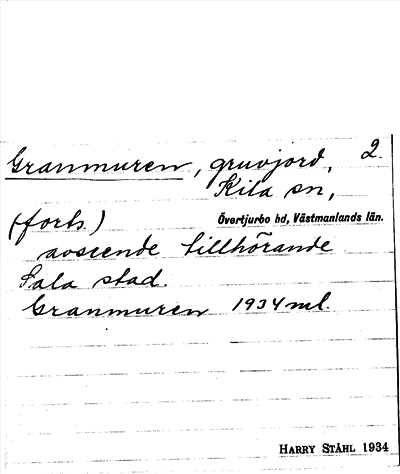 Granmuren, gruvjord, 2.
Kila sn,
Övertjurbo hd, Västmanlands län.
(forts.)
avseende tillhörande
Sala stad.
Granmuren 1934 ml.
HARRY STÅHL 1934